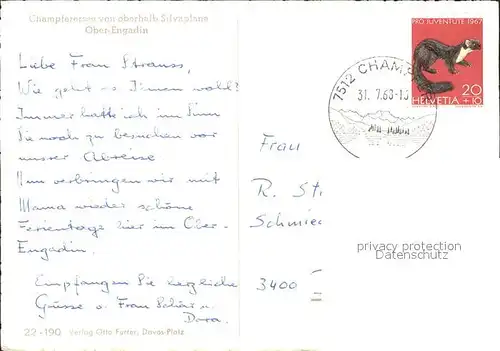 Champfèrersee von oberhalb Silvaplana
Ober-Engadin
Liebe Frau Strauss,
Wie geht es Ihnen wohl?
Immer hatte ich im Sinn
Sie noch zu besuchen vor
unsrer Abreise
Nun verbringen wir mit
Mama wieder schöne
Ferientage hier im Ober-
Engadin.
Empfangen Sie herzliche
Grüsse v. Frau Schär u.
Dora.
22-190 Verlag Otto Furter, Davos-Platz
PRO JUVENTUTE 1967
20
+10
HELVETIA
7512 CHAMP
31.7.68-1
Frau
R. St
Schmie
3400
privacy protection
Datenschutz